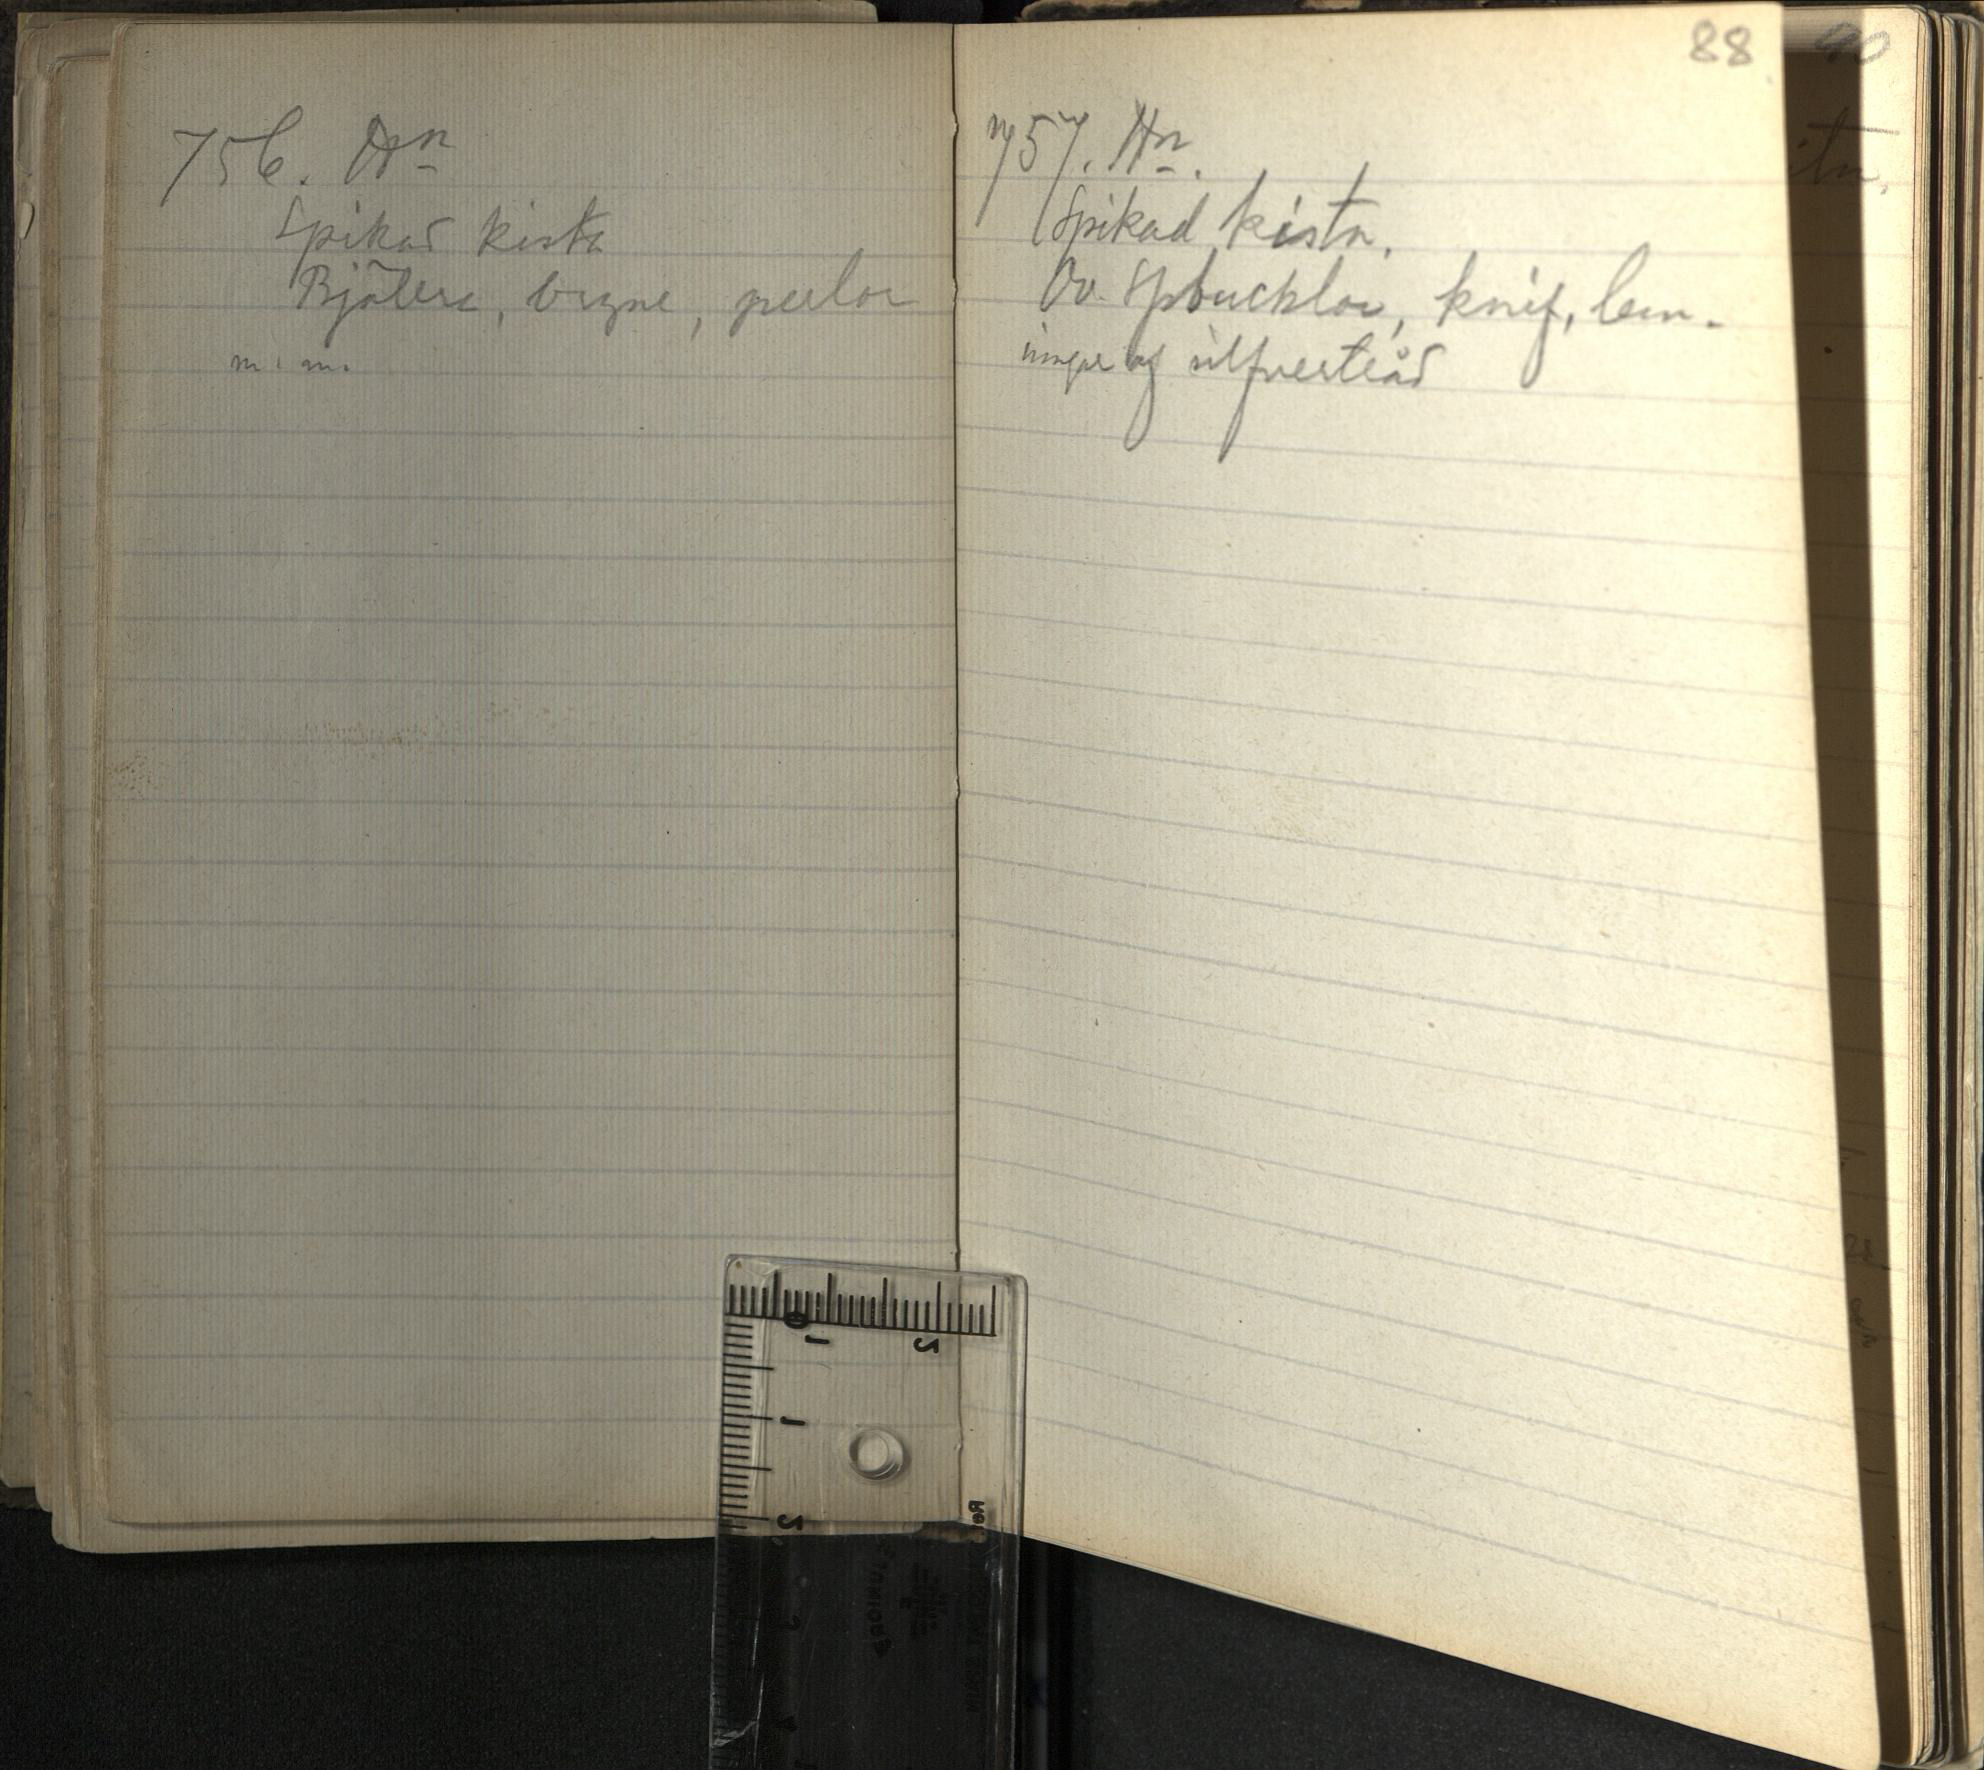 756. Hn
Spikad kista
Bjällra, bryne, perlor
m. m.
88
757. Hn.
Spikad kista.
Ov. Spbucklor, knif, lem-
ningar af silfvertråd
90